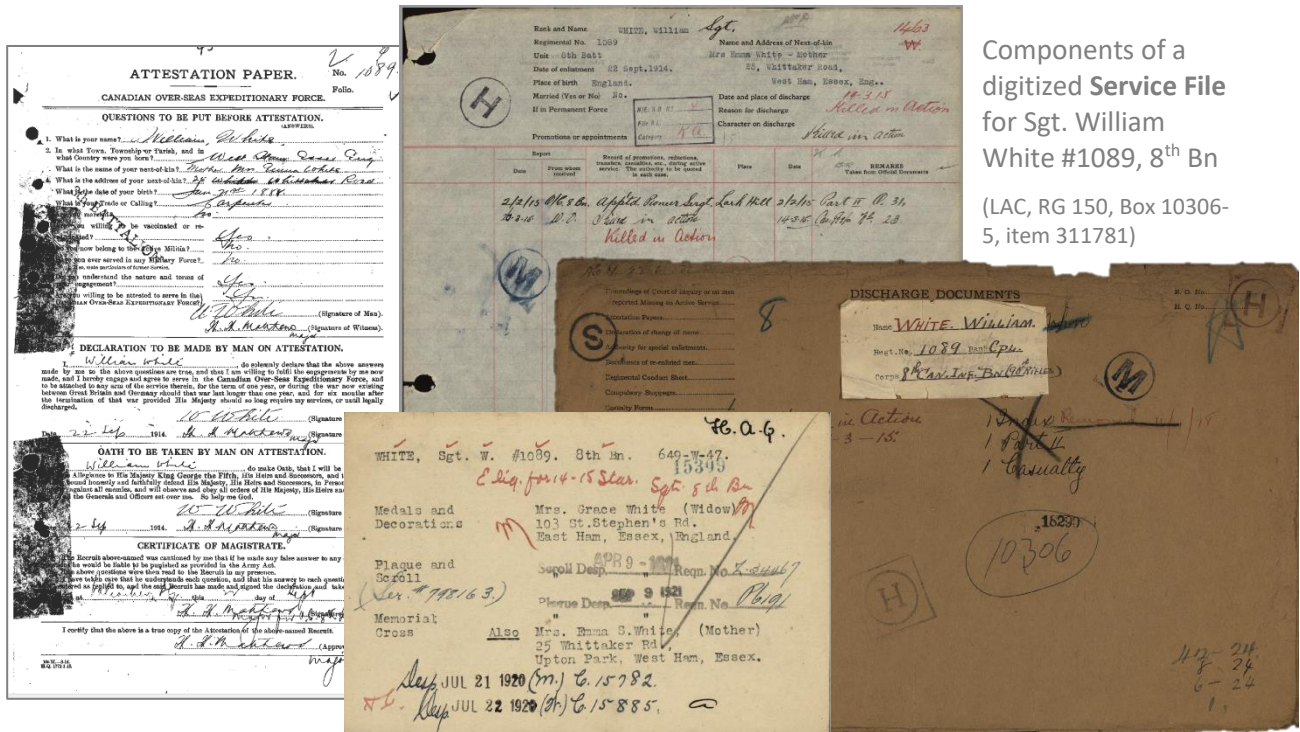 ATTESTATION PAPER.
No. 1089
Folio.
CANADIAN OVER-SEAS EXPEDITIONARY FORCE.
QUESTIONS TO BE PUT BEFORE ATTESTATION.
(ANSWERS).
1. What is your name? William White
2. In what Town, Township or Parish, and in
what Country were you born? West Ham Essex Eng
What is the name of your next-of-kin? Mother Mrs Emma White
What is the address of your next-of-kin? Whittaker Road
What is the date of your birth?
What is your Trade or Calling? Carpenter
married? No
you willing to be vaccinated or re-
Yes
you now belong to the Active Militia? No
you ever served in any Military Force? No
state particulars of former Service.
understand the nature and terms of
engagement? Yes
you willing to be attested to serve in the
CANADIAN OVER-SEAS EXPEDITIONARY FORCE? Yes
W White (Signature of Man).
(Signature of Witness).
DECLARATION TO BE MADE BY MAN ON ATTESTATION.
I, William White, do solemnly declare that the above answers
made by me to the above questions are true, and that I am willing to fulfil the engagements by me now
made, and I hereby engage and agree to serve in the Canadian Over-Seas Expeditionary Force, and
to be attached to any arm of the service therein, for the term of one year, or during the war now existing
between Great Britain and Germany should that war last longer than one year, and for six months after
the termination of that war provided His Majesty should so long require my services, or until legally
discharged.
W White (Signature
Date 22 Sep 1914. (Signature
OATH TO BE TAKEN BY MAN ON ATTESTATION.
William White, do make Oath, that I will be
Allegiance to His Majesty King George the Fifth, His Heirs and Successors, and
bound honestly and faithfully defend His Majesty, His Heirs and Successors, in Person
against all enemies, and will observe and obey all orders of His Majesty, His Heirs and
the Generals and Officers set over me. So help me God.
W White (Signature
22 Sep 1914. (Signature
CERTIFICATE OF MAGISTRATE.
The Recruit above-named was cautioned by me that if he made any false answer to any
he would be liable to be punished as provided in the Army Act.
The above questions were then read to the Recruit in my presence.
I have taken care that he understands each question, and that his answer to each question
entered as replied to, and the said Recruit has made and signed the declaration and taken
at this 22 day of Sept
I certify that the above is a true copy of the Attestation of the above-named Recruit.
(Approv
Rank and Name WHITE, William Sgt.
Regimental No. 1089
Unit 8th Batt
Date of enlistment 22 Sept.1914.
Place of birth England.
Married (Yes or No) No.
If in Permanent Force
Promotions or appointments
Name and Address of Next-of-kin
Mrs Emma White - Mother
25, Whittaker Road,
West Ham, Essex, Eng..
Date and place of discharge
Reason for discharge Killed in Action
Character on discharge Killed in action
H
Report
Date
From whom received
Record of promotions, reductions,
transfers, casualties, etc., during active
service. The authority to be quoted
in each case.
Place
Date
REMARKS
Taken from Official Documents
2/2/15 O/C 8 Bn. Appt'd Pioneer Sergt. Lark Hill 2/2/15 Part II O. 31
Killed in Action
M
Components of a
digitized Service File
for Sgt. William
White #1089, 8th Bn
(LAC, RG 150, Box 10306-
5, item 311781)
Proceedings of Court of Inquiry on man
reported Missing on Active Service
Attestation Papers
Declaration of change of name
Authority for special enlistments
Regimental Conduct Sheet
Compulsory Stoppages
Casualty Forms
S
8
DISCHARGE DOCUMENTS
R. O. No.
H. Q. No.
H
Name WHITE. WILLIAM.
Regt. No. 1089 Rank Cpl.
Corps 8th CAN. INF. BN (90 RIFLES)
M
in Action
3-15.
1 Index
1 Part II
1 Casualty
10306
H
42 - 24
8 - 24
6 - 24
1,
H.A.G.
WHITE, Sgt. W. #1089. 8th Bn. 649-W-47.
15309
Elig. for 14-15 Star. Sgt. 8th Bn
Medals and
Decorations
Mrs. Grace White (Widow)
103 St.Stephen's Rd.
East Ham, Essex, England.
Plaque and
Scroll
(Ser. # 798163.)
Scroll Desp. APR 9 - " Reqn. No Z-34467
Plaque Desp. SEP 9 1921 Reqn. No P6191
Memorial
Cross
Also Mrs. Emma S.White, (Mother)
25 Whittaker Rd.,
Upton Park, West Ham, Essex.
Desp JUL 21 1920 (M.) C. 15782.
Desp JUL 22 1920 (W) C. 15885.